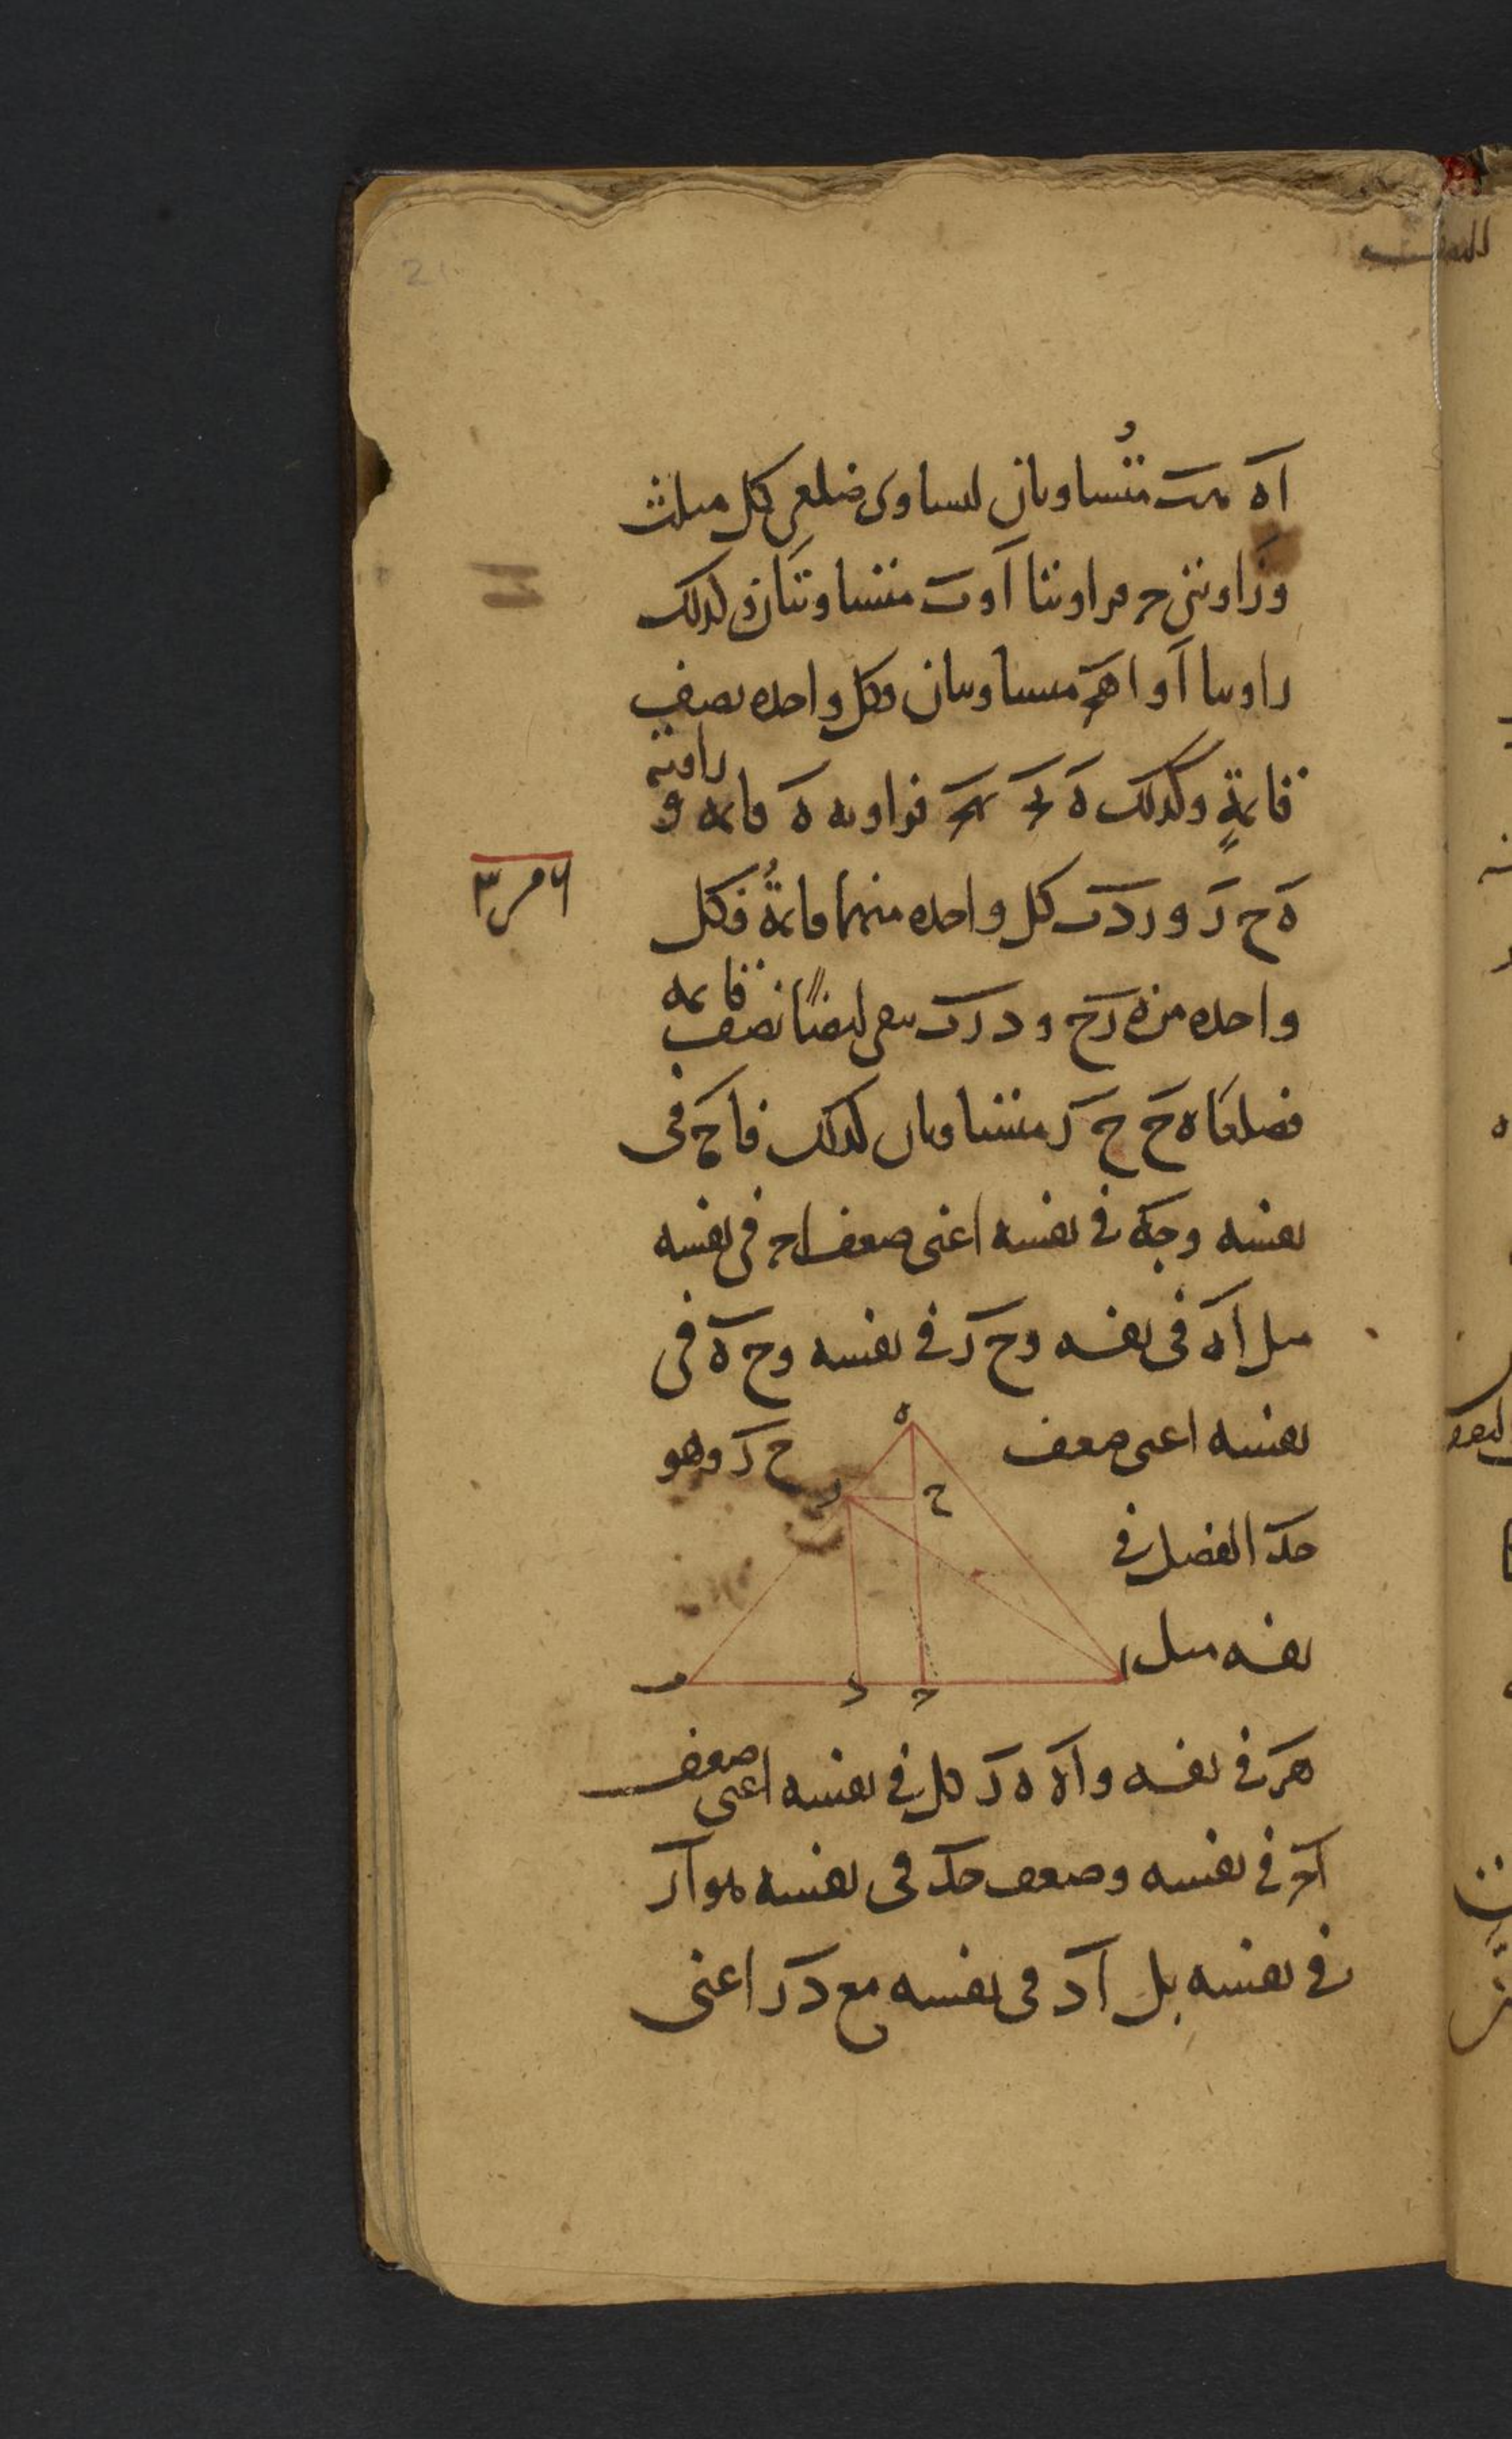 اه هب متساويان لتساوى ضلعى كل مثلث
وزاويتى ح فزاويتا ا و ب متساويتان وكذلك
زاويتا ا و اهح متساويتان وكل واحده نصف
قايمةٍ وكذلك ه فزاويه ه قايمه و زاويه
ه ح ر و ر د ب كل واحده منهما قايمةٌ فكل
٦ مر ٣
واحده من ه ر ح و د ر ب يبقى ايضًا نصف قايمه
فضلعا ه ح ح ر متساويان لذلك فاح فى
نفسه وجه فى نفسه اعنى ضعف اح فى نفسه
مثل اه فى نفسه وح ر فى نفسه وح ه فى
نفسه اعنى ضعف ح ر وهو
حد الفضل فى
نفسه مثل
هر فى نفسه واه ه ر كل فى نفسه اعنى ضعف
اح فى نفسه وضعف حد فى نفسه هو ار
فى نفسه بل اد فى نفسه مع در اعنى
ه
ر
ح
ا
ب
د
ح
21